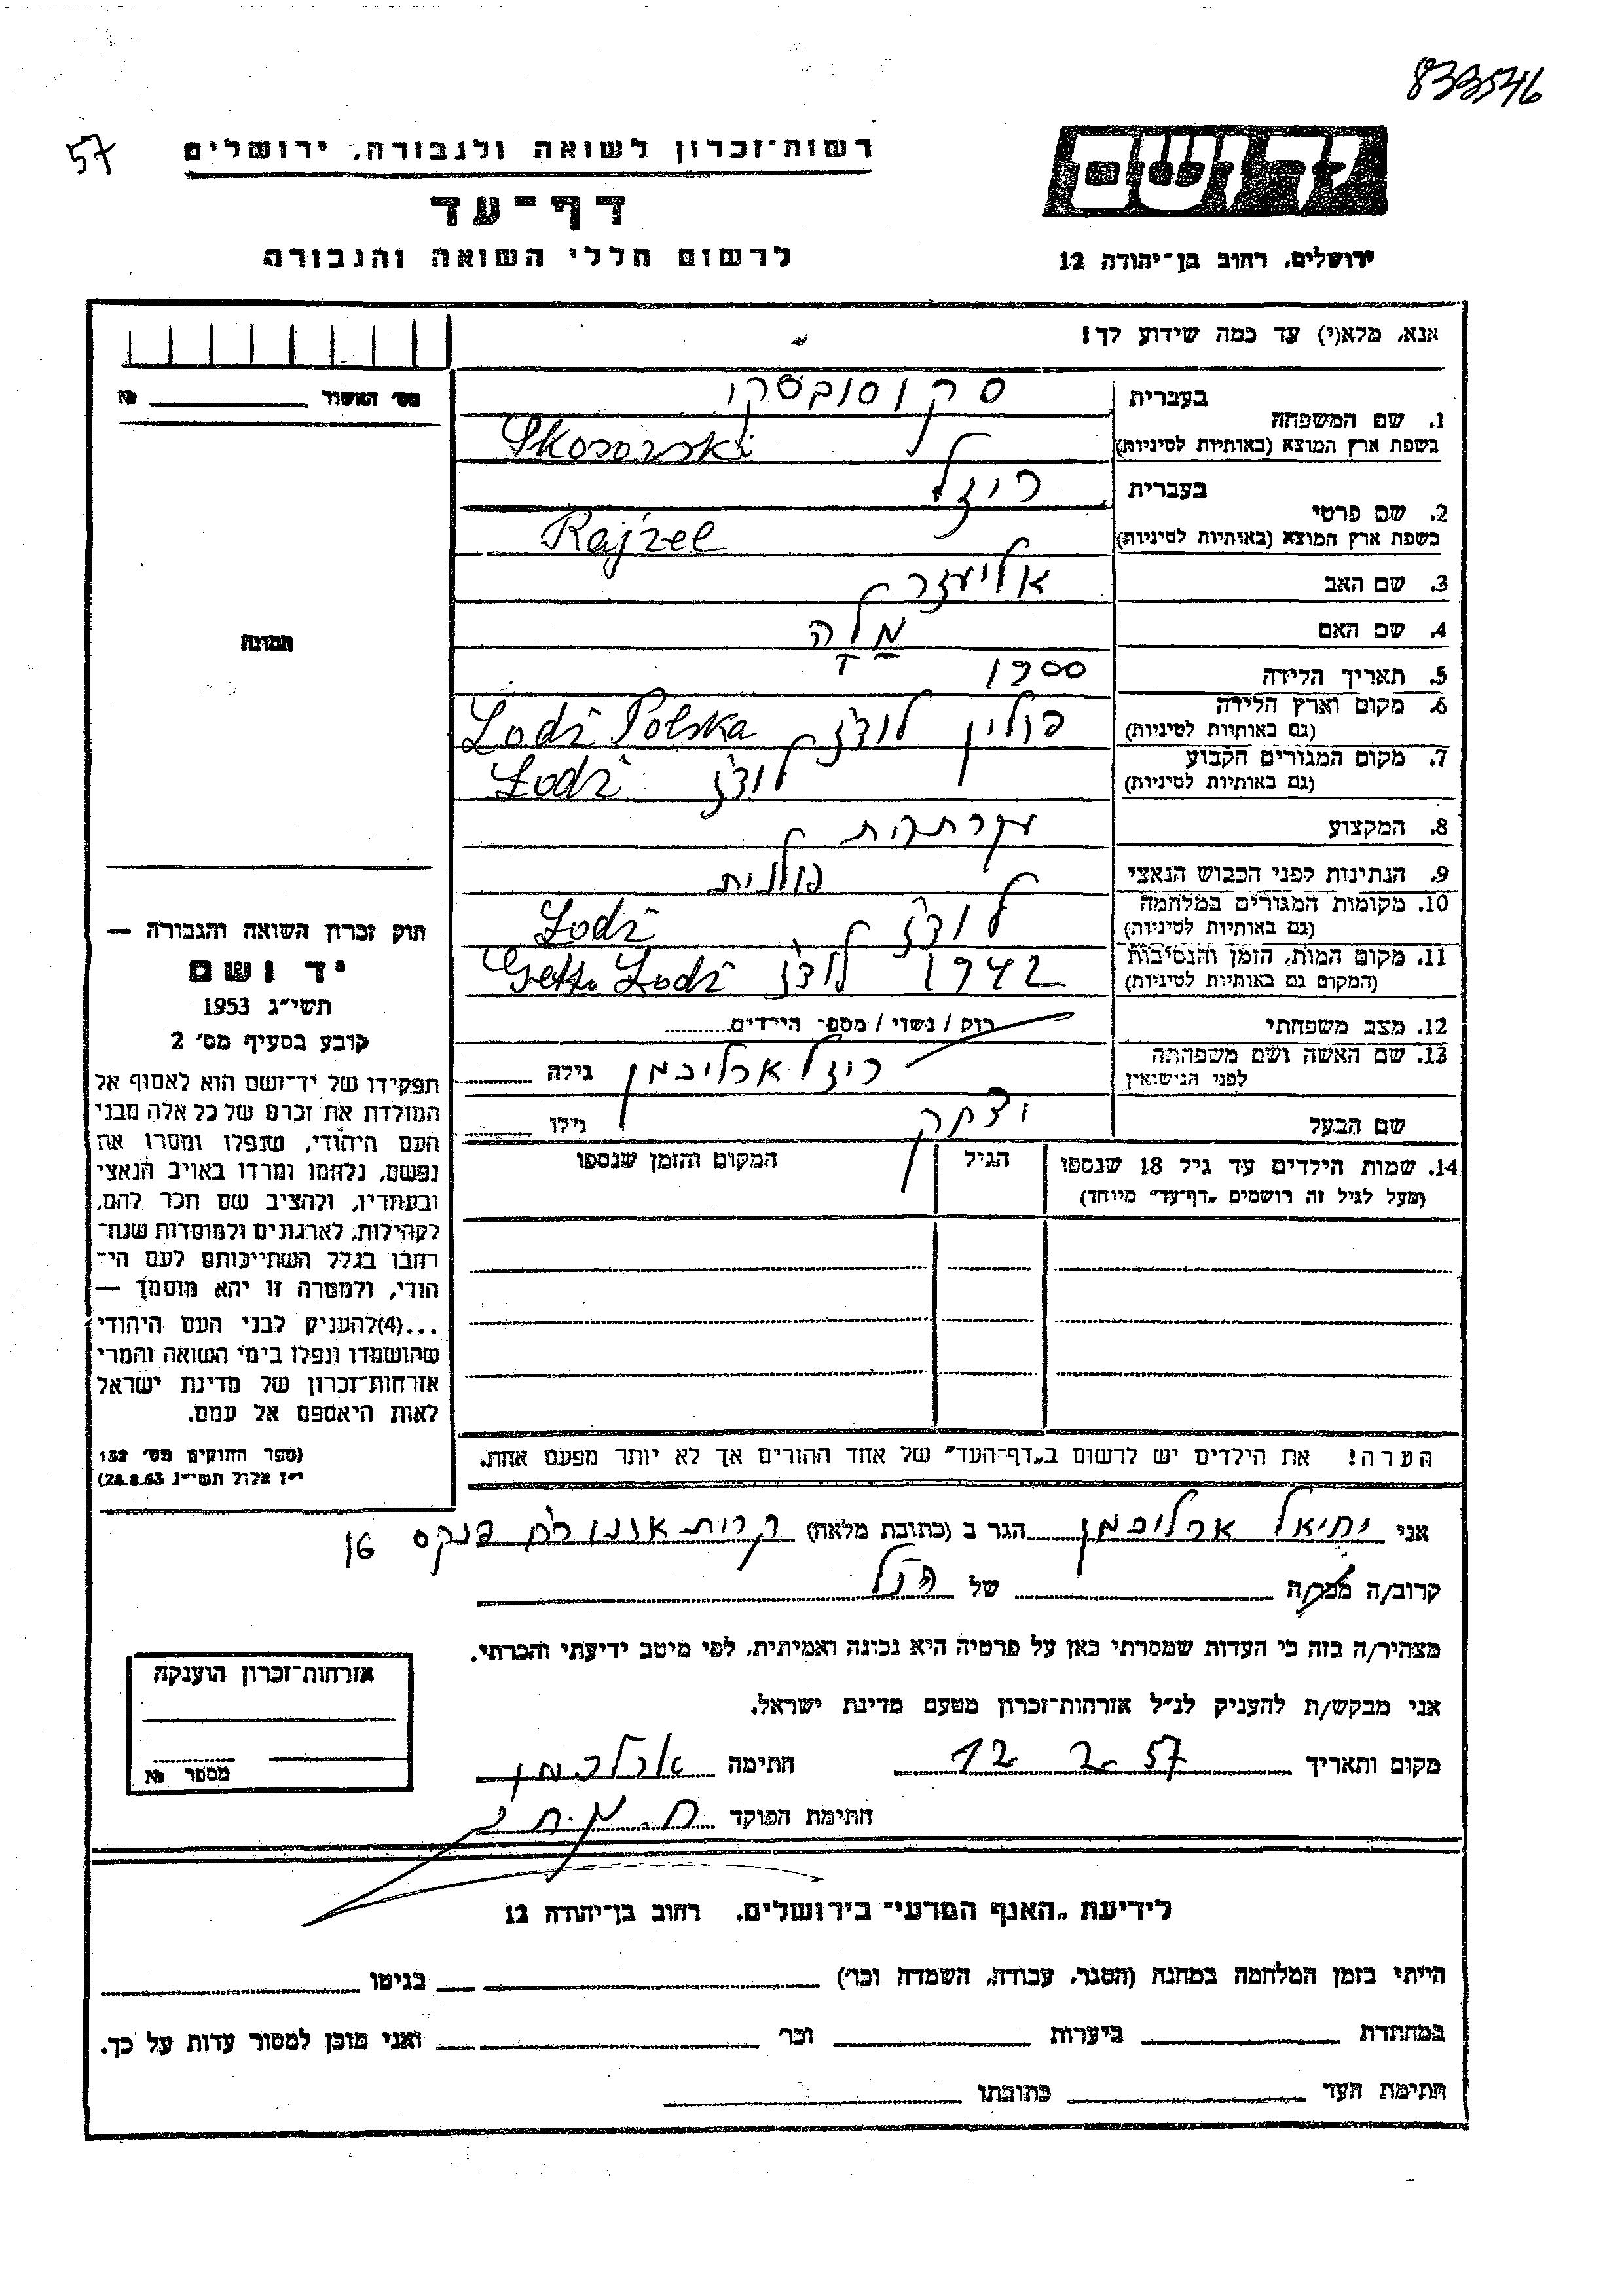 833546
57
רשות־זכרון לשואה ולגבורה, ירושלים
דף־עד
לרשום חללי השואה והגבורה
יד ושם
ירושלים, רחוב בן־יהודה 12
אנא, מלא(י) עד כמה שידוע לך!
מס' האשור № 
תמונה
1. שם המשפחה
בעברית סקוסובסקי
בשפת ארץ המוצא (באותיות לטיניות) Skosowski
2. שם פרטי
בעברית ריזל
בשפת ארץ המוצא (באותיות לטיניות) Rajzel
3. שם האב אליעזר
4. שם האם מלה
5. תאריך הלידה 1900
6. מקום וארץ הלידה (גם באותיות לטיניות) פולין לודז Lodź Polska
7. מקום המגורים הקבוע (גם באותיות לטיניות) לודז Lodź
8. המקצוע
9. הנתינות לפני הכבוש הנאצי פולנית
10. מקומות המגורים במלחמה (גם באותיות לטיניות) לודז Lodź
11. מקום המות, הזמן והנסיבות (המקום גם באותיות לטיניות) 1942 לודז Getto Lodź
12. מצב משפחתי רוק / נשוי / מספר הילדים
13. שם האשה ושם משפחתה לפני הנישואין ריזל ארליכמן גילה
שם הבעל יצחק גילו
14. שמות הילדים עד גיל 18 שנספו הגיל המקום והזמן שנספו
(מעל לגיל זה רושמים „דף־עד" מיוחד)
הערה! את הילדים יש לרשום ב„דף־העד" של אחד ההורים אך לא יותר מפעם אחת.
חוק זכרון השואה והגבורה —
יד ושם
תשי"ג 1953
קובע בסעיף מס' 2
תפקידו של יד־ושם הוא לאסוף אל
המולדת את זכרם של כל אלה מבני
העם היהודי, שנפלו ומסרו את
נפשם, נלחמו ומרדו באויב הנאצי
ובעוזריו, ולהציב שם וזכר להם,
לקהילות, לארגונים ולמוסדות שנח־
רבו בגלל השתייכותם לעם הי־
הודי, ולמטרה זו יהא מוסמך —
...(4) להעניק לבני העם היהודי
שהושמדו ונפלו בימי השואה והמרי
אזרחות־זכרון של מדינת ישראל
לאות היאספם אל עמם.
(ספר החוקים מס' 132
י"ז אלול תשי"ג 28.8.53)
אני יחיאל ארליכמן הגר ב (כתובת מלאה) קרית אונו רח פנקס 16
קרוב/ה מכר/ה של הנ"ל
מצהיר/ה בזה כי העדות שמסרתי כאן על פרטיה היא נכונה ואמיתית, לפי מיטב ידיעתי והכרתי.
אני מבקש/ת להעניק לנ"ל אזרחות־זכרון מטעם מדינת ישראל.
מקום ותאריך 12 2 57 חתימה ארליכמן
חתימת הפוקד
אזרחות־זכרון הוענקה
מספר №
לידיעת „האגף המדעי" בירושלים, רחוב בן־יהודה 12
הייתי בזמן המלחמה במחנה (הסגר, עבודה, השמדה וכו') בגיטו
במחתרת ביערות וכו' ואני מוכן למסור עדות על כך.
חתימת העד כתובתו